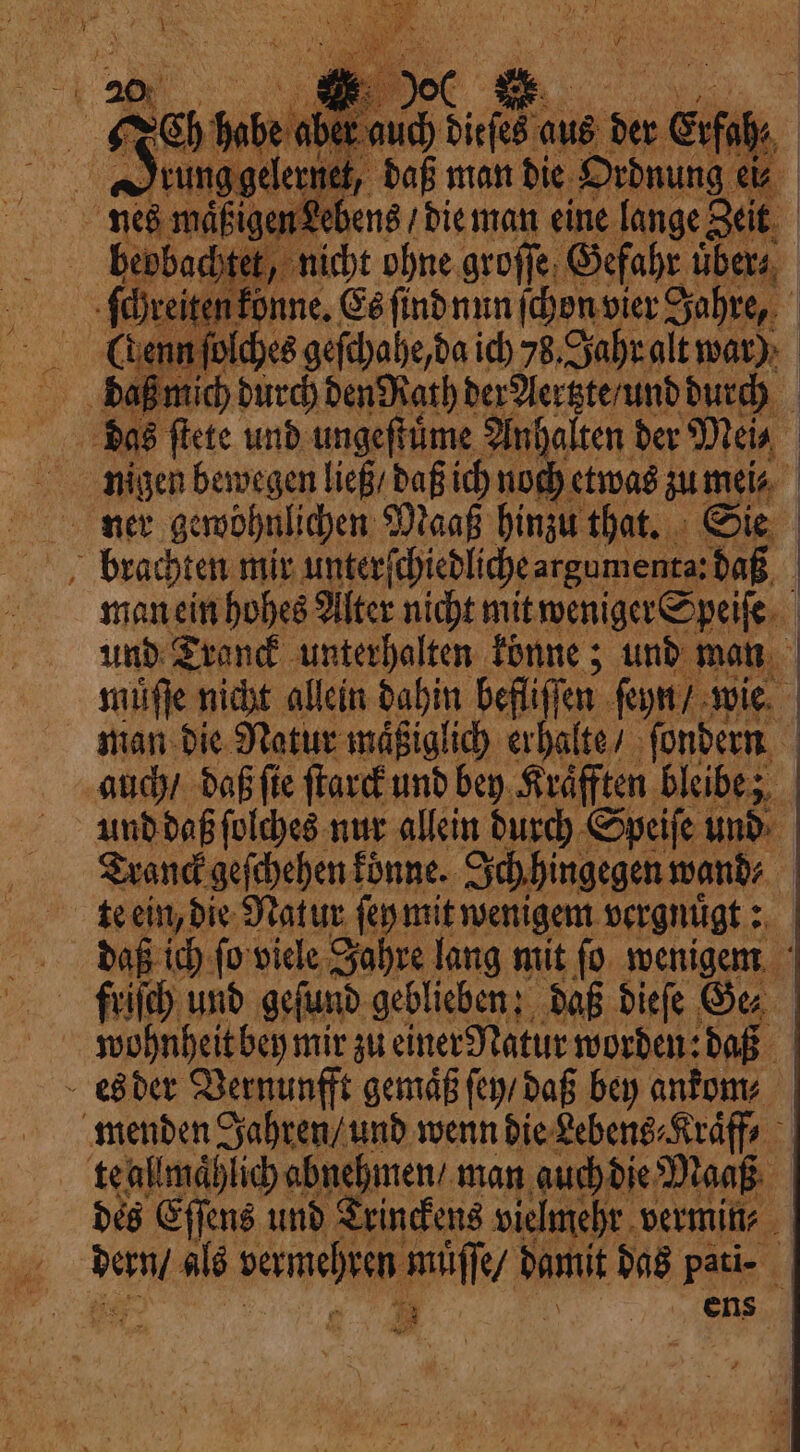 20 )o(
ICh habe aber auch dieſes aus der Erfah⸗
rung gelernet, daß man die Ordnung ei⸗
nes maͤßigen Lebens / die man eine lange Zeit
beobachtet, nicht ohne groſſe Gefahr uͤber⸗
ſchreiten koͤnne. Es ſind nun ſchon vier Jahre,
(denn ſolches geſchahe, da ich 78. Jahr alt war)
daß mich durch den Rath der Aertzte / und durch
das ſtete und ungeſtuͤme Anhalten der Mei⸗
nigen bewegen ließ / daß ich noch etwas zu mei⸗
ner gewoͤhnlichen Maaß hinzu that. Sie
brachten mir unterſchiedliche argumenta: daß
man ein hohes Alter nicht mit weniger Speiſe
und Tranck unterhalten koͤnne; und man
muͤſſe nicht allein dahin befliſſen ſeyn / wie
man die Natur maͤßiglich erhalte / ſondern
auch / daß ſie ſtarck und bey Kraͤfften bleibe;
und daß ſolches nur allein durch Speiſe und
Tranck geſchehen koͤnne. Ich hingegen wand⸗
te ein, die Natur ſey mit wenigem vergnuͤgt:
daß ich ſo viele Jahre lang mit ſo wenigem
friſch und geſund geblieben: daß dieſe Ge⸗
wohnheit bey mir zu einer Natur worden: daß
es der Vernunfft gemaͤß ſey / daß bey ankom⸗
menden Jahren / und wenn die Lebens⸗Kraͤff⸗
te allmaͤhlich abnehmen / man auch die Maaß
des Eſſens und Trinckens vielmehr vermin⸗
dern / als vermehren muͤſſe / damit das pati-
ens